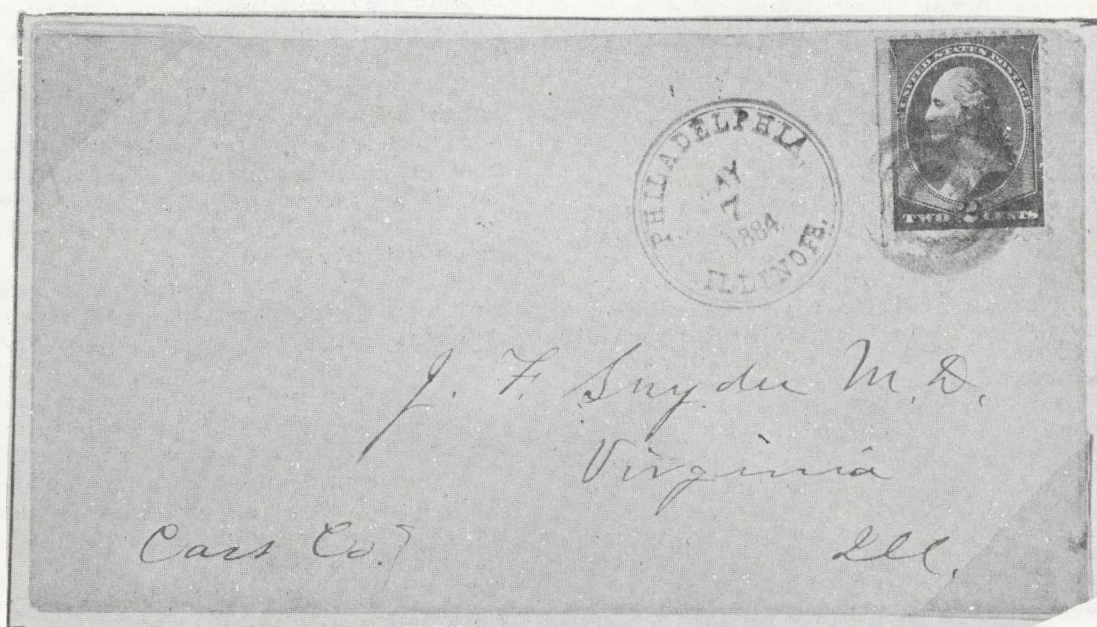 UNITED STATES POSTAGE
TWO 2 CENTS.
PHILADELPHIA,
7
1884
ILLINOIS.
J. F. Snyder M.D.
Virginia
Cass Co
Ill.